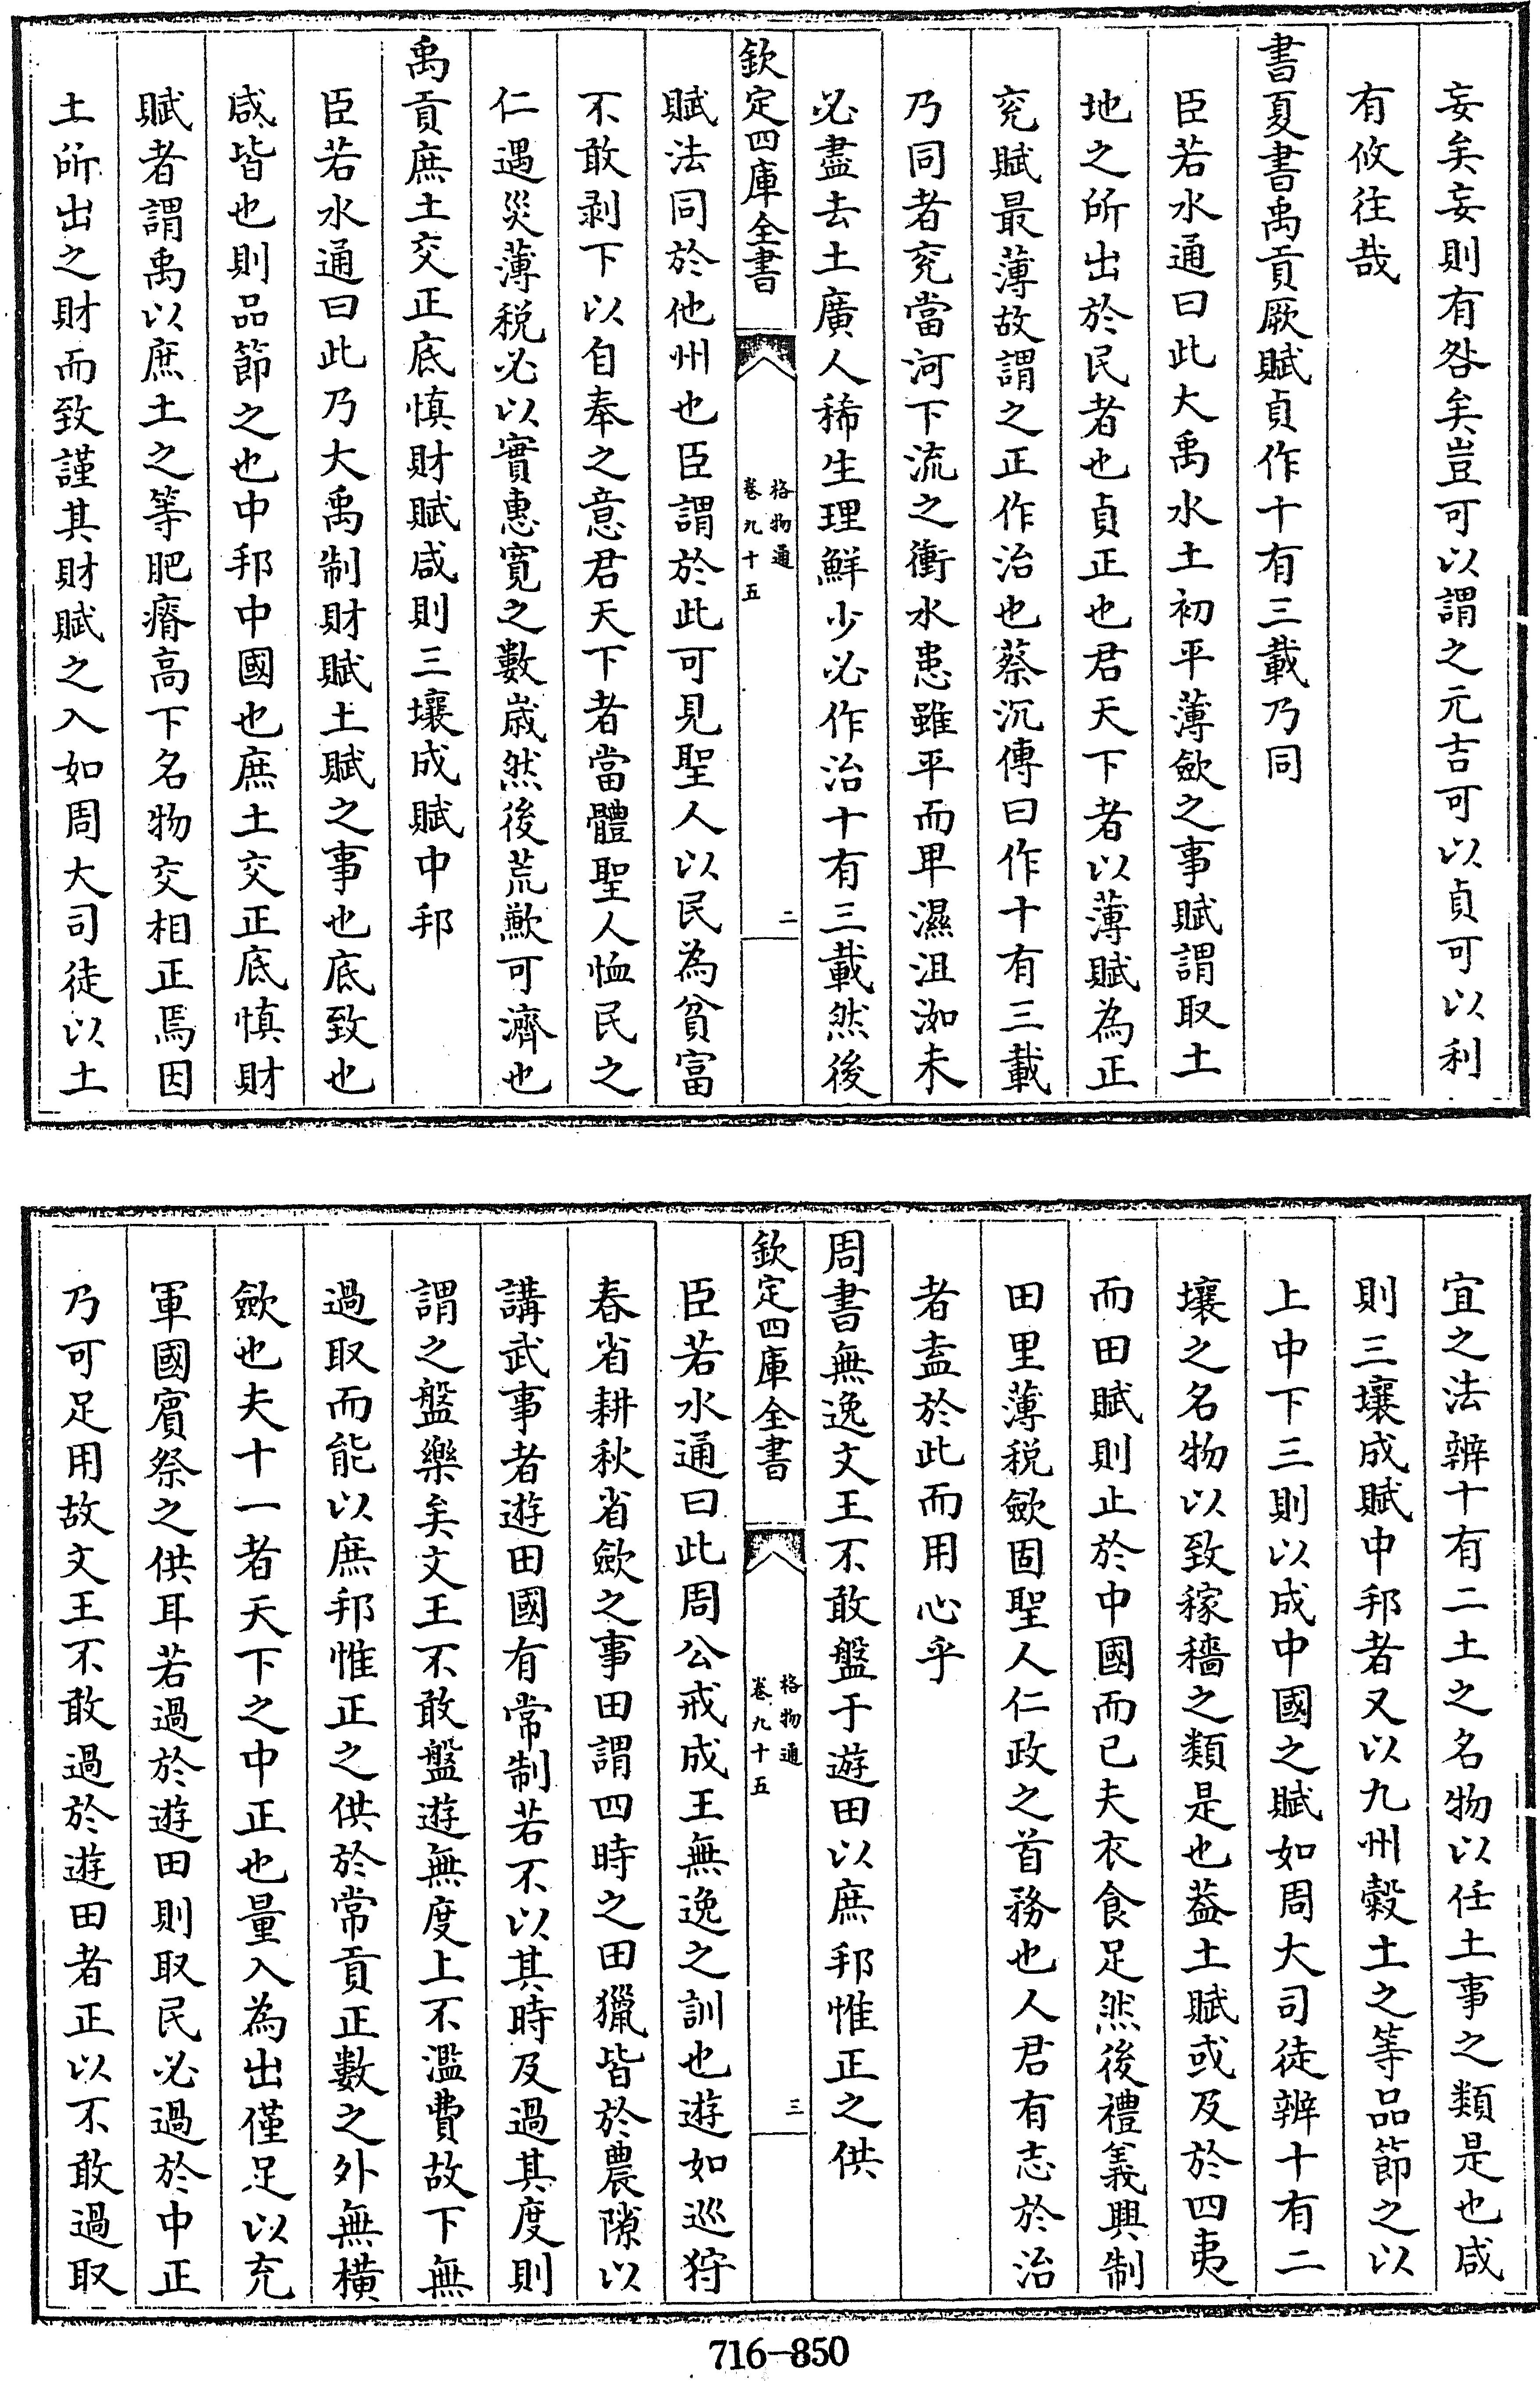 妄矣妄則有咎矣豈可以謂之元吉可以貞可以利
有攸往哉
書夏書禹貢厥賦貞作十有三載乃同
臣若水通曰此大禹水土初平薄歛之事賦謂取土
地之所出於民者也貞正也君天下者以薄賦為正
兖賦最薄故謂之正作治也蔡沉傳曰作十有三載
乃同者兖當河下流之衝水患雖平而卑濕沮洳未
必盡去土廣人稀生理鮮少必作治十有三載然後
欽定四庫全書
格物通
卷九十五
二
賦法同於他州也臣謂於此可見聖人以民為貧富
不敢剥下以自奉之意君天下者當體聖人恤民之
仁遇災薄税必以實惠寛之數嵗然後荒歉可濟也
禹貢庶土交正底慎財賦咸則三壤成賦中邦
臣若水通曰此乃大禹制財賦土賦之事也底致也
咸皆也則品節之也中邦中國也庶土交正底慎財
賦者謂禹以庶土之等肥瘠高下名物交相正焉因
土所出之財而致謹其財賦之入如周大司徒以土
宜之法辨十有二土之名物以任土事之類是也咸
則三壤成賦中邦者又以九州穀土之等品節之以
上中下三則以成中國之賦如周大司徒辨十有二
壤之名物以致稼穡之類是也葢土賦或及於四夷
而田賦則止於中國而已夫衣食足然後禮義興制
田里薄税歛固聖人仁政之首務也人君有志於治
者盍於此而用心乎
周書無逸文王不敢盤于遊田以庶邦惟正之供
欽定四庫全書
格物通
卷九十五
三
臣若水通曰此周公戒成王無逸之訓也遊如巡狩
春省耕秋省歛之事田謂四時之田獵皆於農隙以
講武事者遊田國有常制若不以其時及過其度則
謂之盤樂矣文王不敢盤遊無度上不濫費故下無
過取而能以庶邦惟正之供於常貢正數之外無橫
歛也夫十一者天下之中正也量入為出僅足以充
軍國賓祭之供耳若過於遊田則取民必過於中正
乃可足用故文王不敢過於遊田者正以不敢過取
716-850